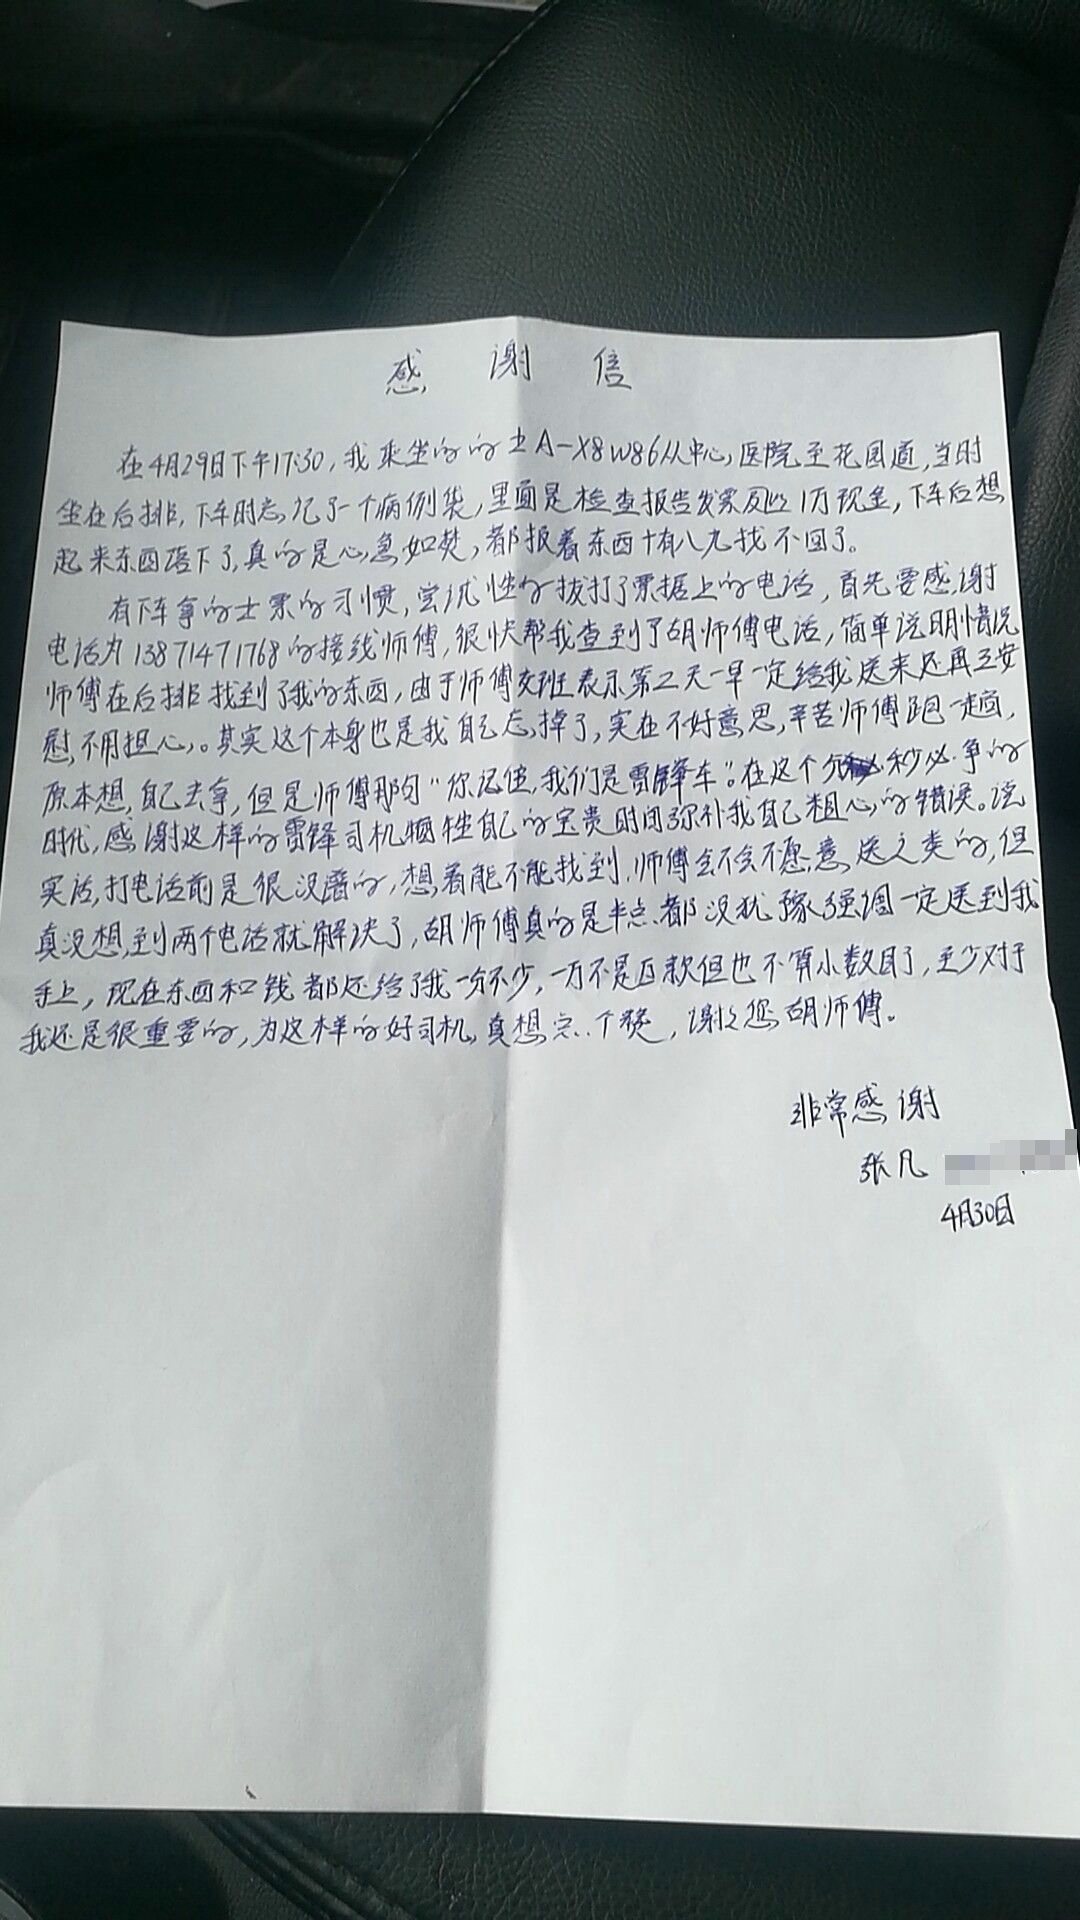 感谢信
在4月29日下午17:30,我乘坐的的士A-X8W86从中心医院至花园道,当时
坐在后排,下车时忘记了一个病例袋,里面是检查报告发票及近1万现金,下车后想
起来东西落下了,真的是心急如焚,都报着东西十有八九找不回了。
有下车拿的士票的习惯,尝试性的拔打了票据上的电话,首先要感谢
电话为13871471768的接线师傅,很快帮我查到了胡师傅电话,简单说明情况
师傅在后排找到了我的东西,由于师傅交班表示第二天一早一定给我送来还再三安
慰不用担心。其实这个本身也是我自己忘掉了,实在不好意思,辛苦师傅跑一趟,
原本想自己去拿,但是师傅那句“你记住,我们是雷锋车”。在这个分秒必争的
时代,感谢这样的雷锋司机牺牲自己的宝贵时间弥补我自己粗心的错误。说
实话,打电话前是很没谱的,想着能不能找到,师傅会不会不愿意送之类的,但
真没想到两个电话就解决了,胡师傅真的是半点都没犹豫强调一定送到我
手上,现在东西和钱都还给了我一分不少,一万不是巨款但也不算小数目了,至少对于
我还是很重要的,为这样的好司机真想点个赞,谢谢您胡师傅。
非常感谢
张凡
4月30日